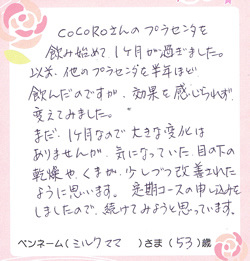 COCOROさんのプラセンタを
飲み始めて1ヶ月が過ぎました。
以前、他のプラセンタを半年ほど
飲んだのですが、効果を感じられず、
変えてみました。
まだ、1ヶ月なので大きな変化は
ありませんが、気になっていた、目の下の
乾燥や、くまが、少しづつ改善された
ように思います。定期コースの申し込みを
しましたので、続けてみようと思っています。
ペンネーム(ミルクママ)さま(53)歳